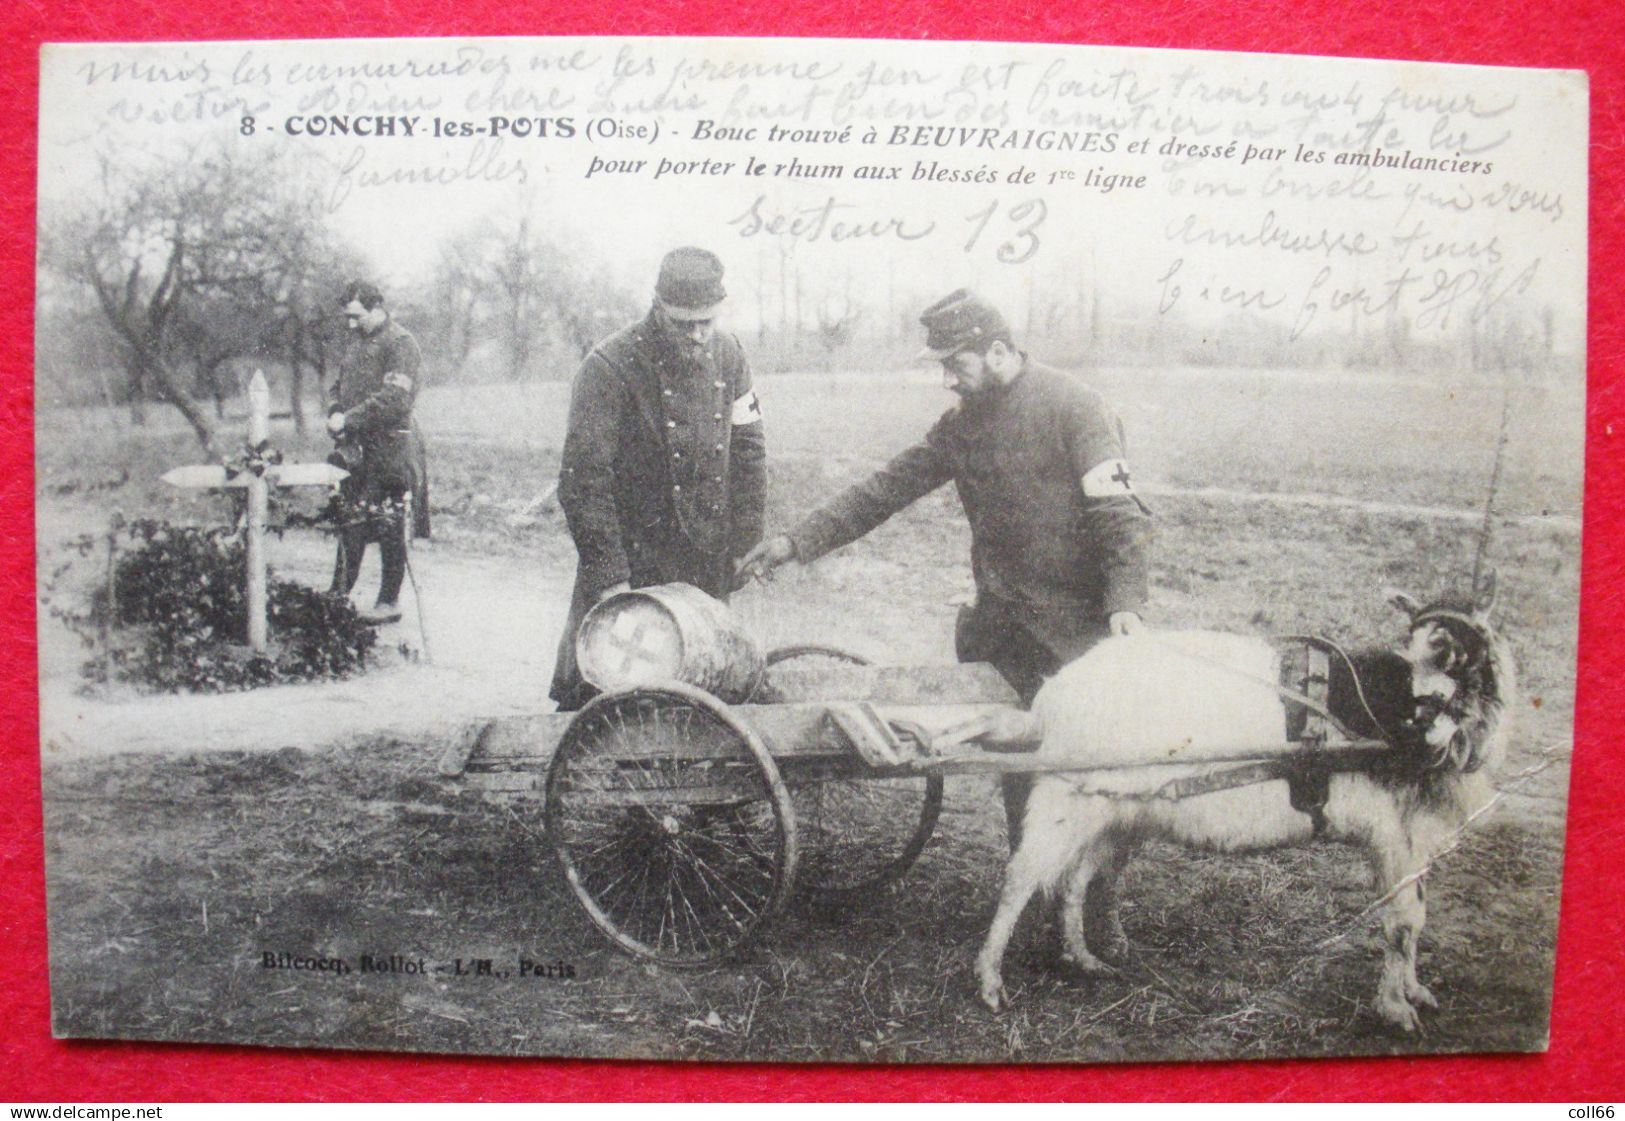 mais les camarades me les prenne jen est faite trois ou 4 pour
victor Adieu chere Lucie fait bien des amitier a toute la
familles.
8 - CONCHY-les-POTS (Oise) - Bouc trouvé à BEUVRAIGNES et dressé par les ambulanciers
pour porter le rhum aux blessés de 1re ligne
Ton oncle qui vous
ambrasse tous
bien fort
secteur 13
Bilcocq, Rollot - L'H., Paris
www.delcampe.net
coll66